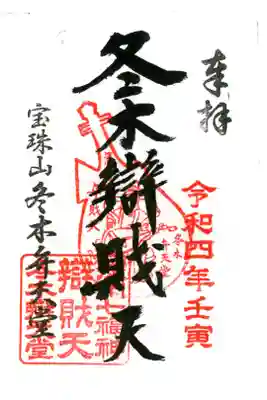 奉拝
令和四年壬寅
冬木辯財天
宝珠山冬木弁天堂
辯財天
冬木
弁天堂